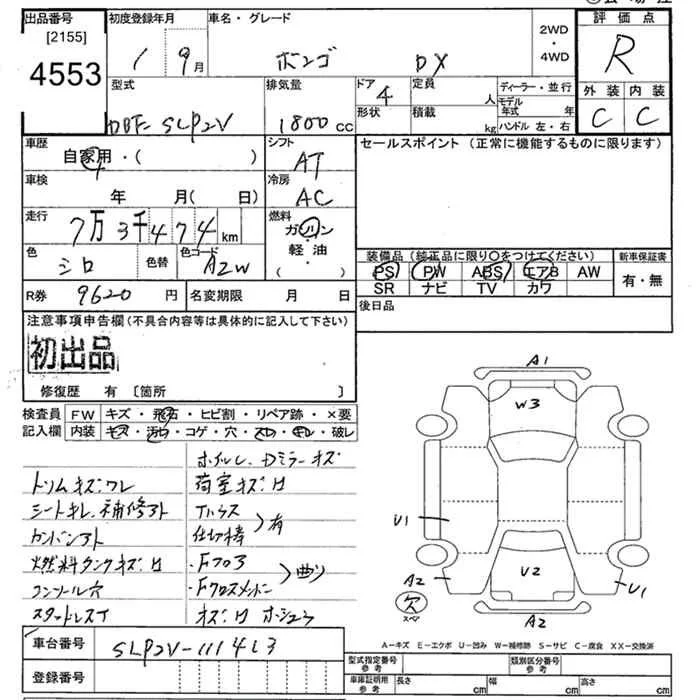 出品番号 初度登録年月 車名・グレード 2WD・4WD 評価点
[2155]
4553
1 9月 ボンゴ DX R
型式 排気量 ドア 4 定員 人 ディーラー・並行 外装 内装
DBF-SLP2V 1800cc 形状 積載 kg モデル年式 年 C C
ハンドル 左・右
車歴 シフト セールスポイント (正常に機能するものに限ります)
自家用・( ) AT
車検 冷房
年 月( 日) AC
走行 燃料
7万3千474km ガソリン
軽油
( )
色 色替 色コード
シロ A2W
装備品 (純正品に限り○をつけてください) 新車保証書
PS PW ABS エアB AW 有・無
SR ナビ TV カワ
R券 9620円 名変期限 月 日 後日品
注意事項申告欄(不具合内容等は具体的に記入して下さい)
初出品
修復歴 有 〔箇所 〕
検査員 FW キズ・飛石・ヒビ割・リペア跡・×要
記入欄 内装 キズ・汚レ・コゲ・穴・スレ・キレ・破レ
ホイル、Dミラーキズ
トリムキズ、ワレ 荷室キズ、サ
シートキレ、補修アト
カンバンアト 仕切棒 有
燃料タンクキズ、サ ・Fフロア
コンソール穴 ・Fクロスメンバー 曲リ
スタットレスT キズ、サ
A1
W3
U1
U2
A2
U1
欠
スペア
A2
A-キズ E-エクボ U-凹み W-補修跡 S-サビ C-腐食 XX-交換済
車台番号 SLP2V-111413
登録番号
型式指定番号 参考 類別区分番号 参考
車庫証明用 参考 長さ cm 幅 cm 高さ cm